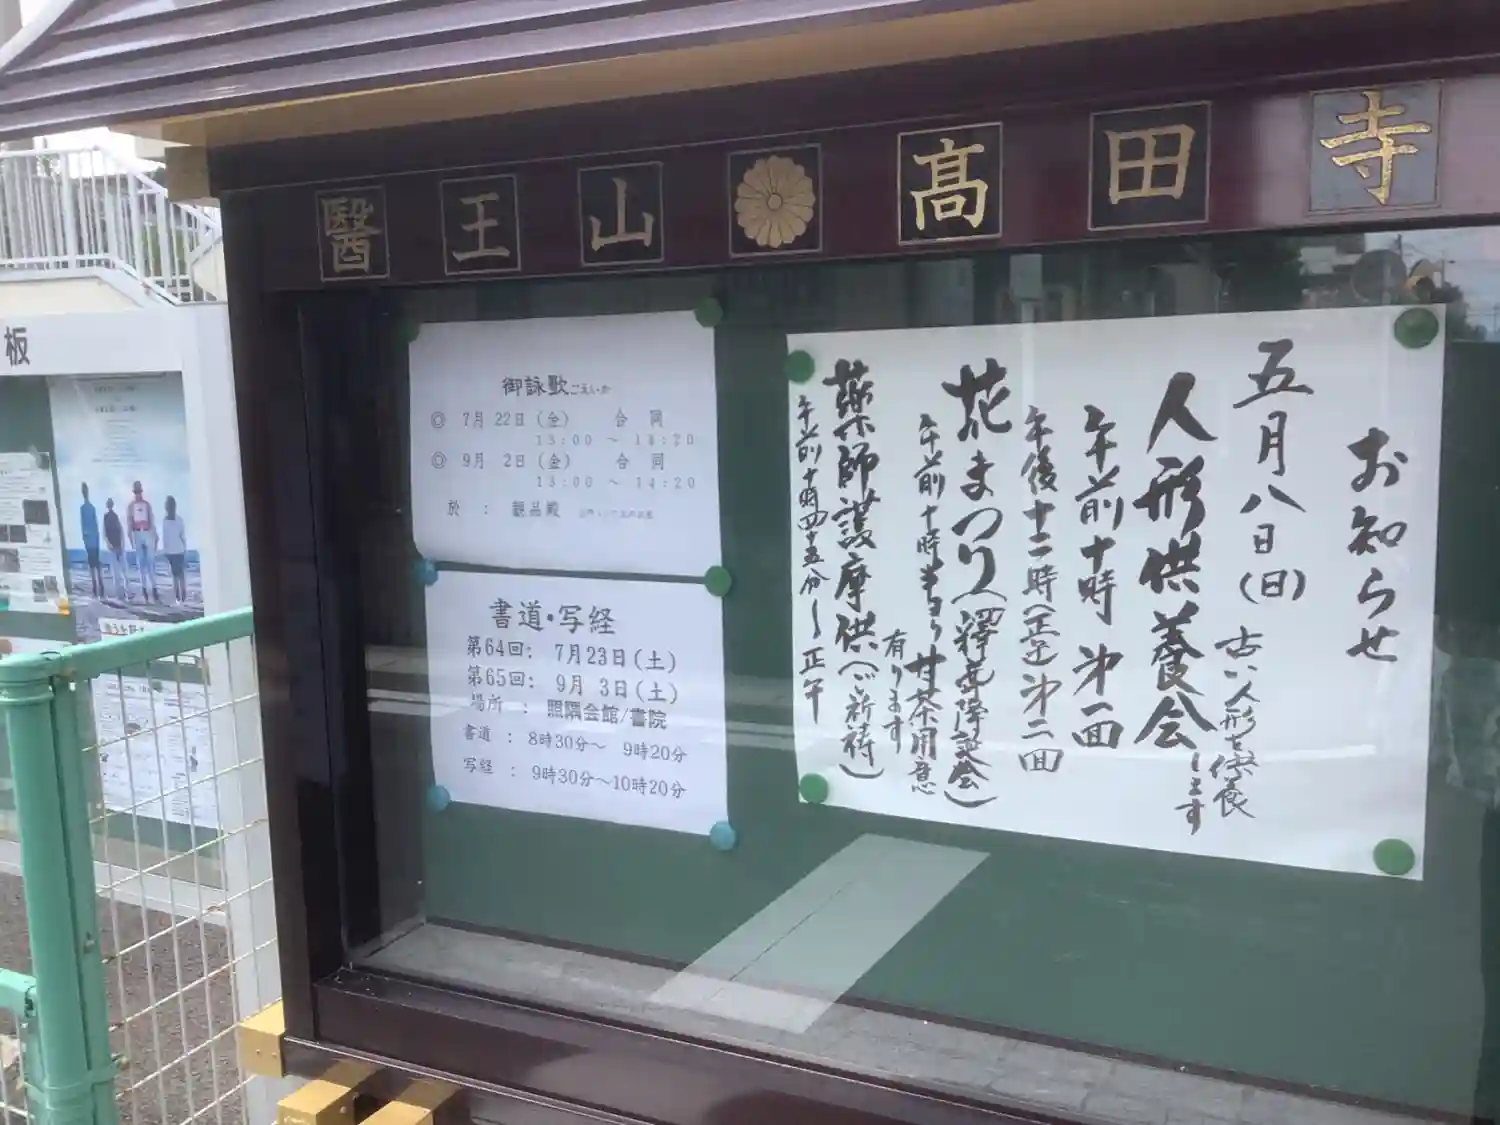 醫王山 高田寺
お知らせ
五月八日(日)
古い人形を供養
人形供養会
します
午前十時 第一回
午後十二時(正午)第二回
花まつり(釋尊降誕会)
午前十時半より甘茶用意
有ります
薬師護摩供(ご祈祷)
午前十時四十五分〜正午
御詠歌ごえいか
◎ 7月22日(金) 合同
13:00 ～ 14:20
◎ 9月 2日(金) 合同
13:00 ～ 14:20
於 : 観品殿
書道・写経
第64回: 7月23日(土)
第65回: 9月 3日(土)
場所 : 照隅会館/書院
書道 : 8時30分～ 9時20分
写経 : 9時30分～10時20分
板